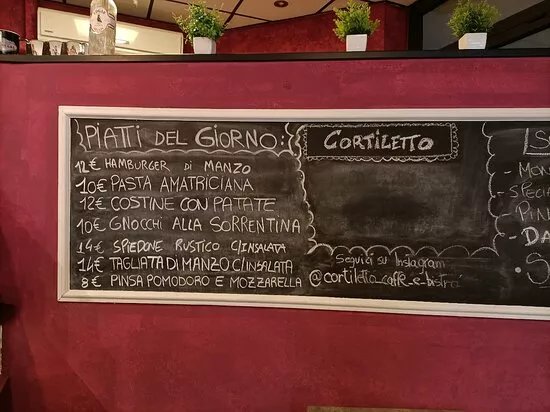 PIATTI DEL GIORNO:
12€ HAMBURGER DI MANZO
10€ PASTA AMATRICIANA
12€ COSTINE CON PATATE
10€ GNOCCHI ALLA SORRENTINA
14€ SPIEDONE RUSTICO C/INSALATA
14€ TAGLIATA DI MANZO C/INSALATA
8€ PINSA POMODORO E MOZZARELLA
CORTILETTO
Seguici su Instagram
@cortiletto_caffe_e_bistrò